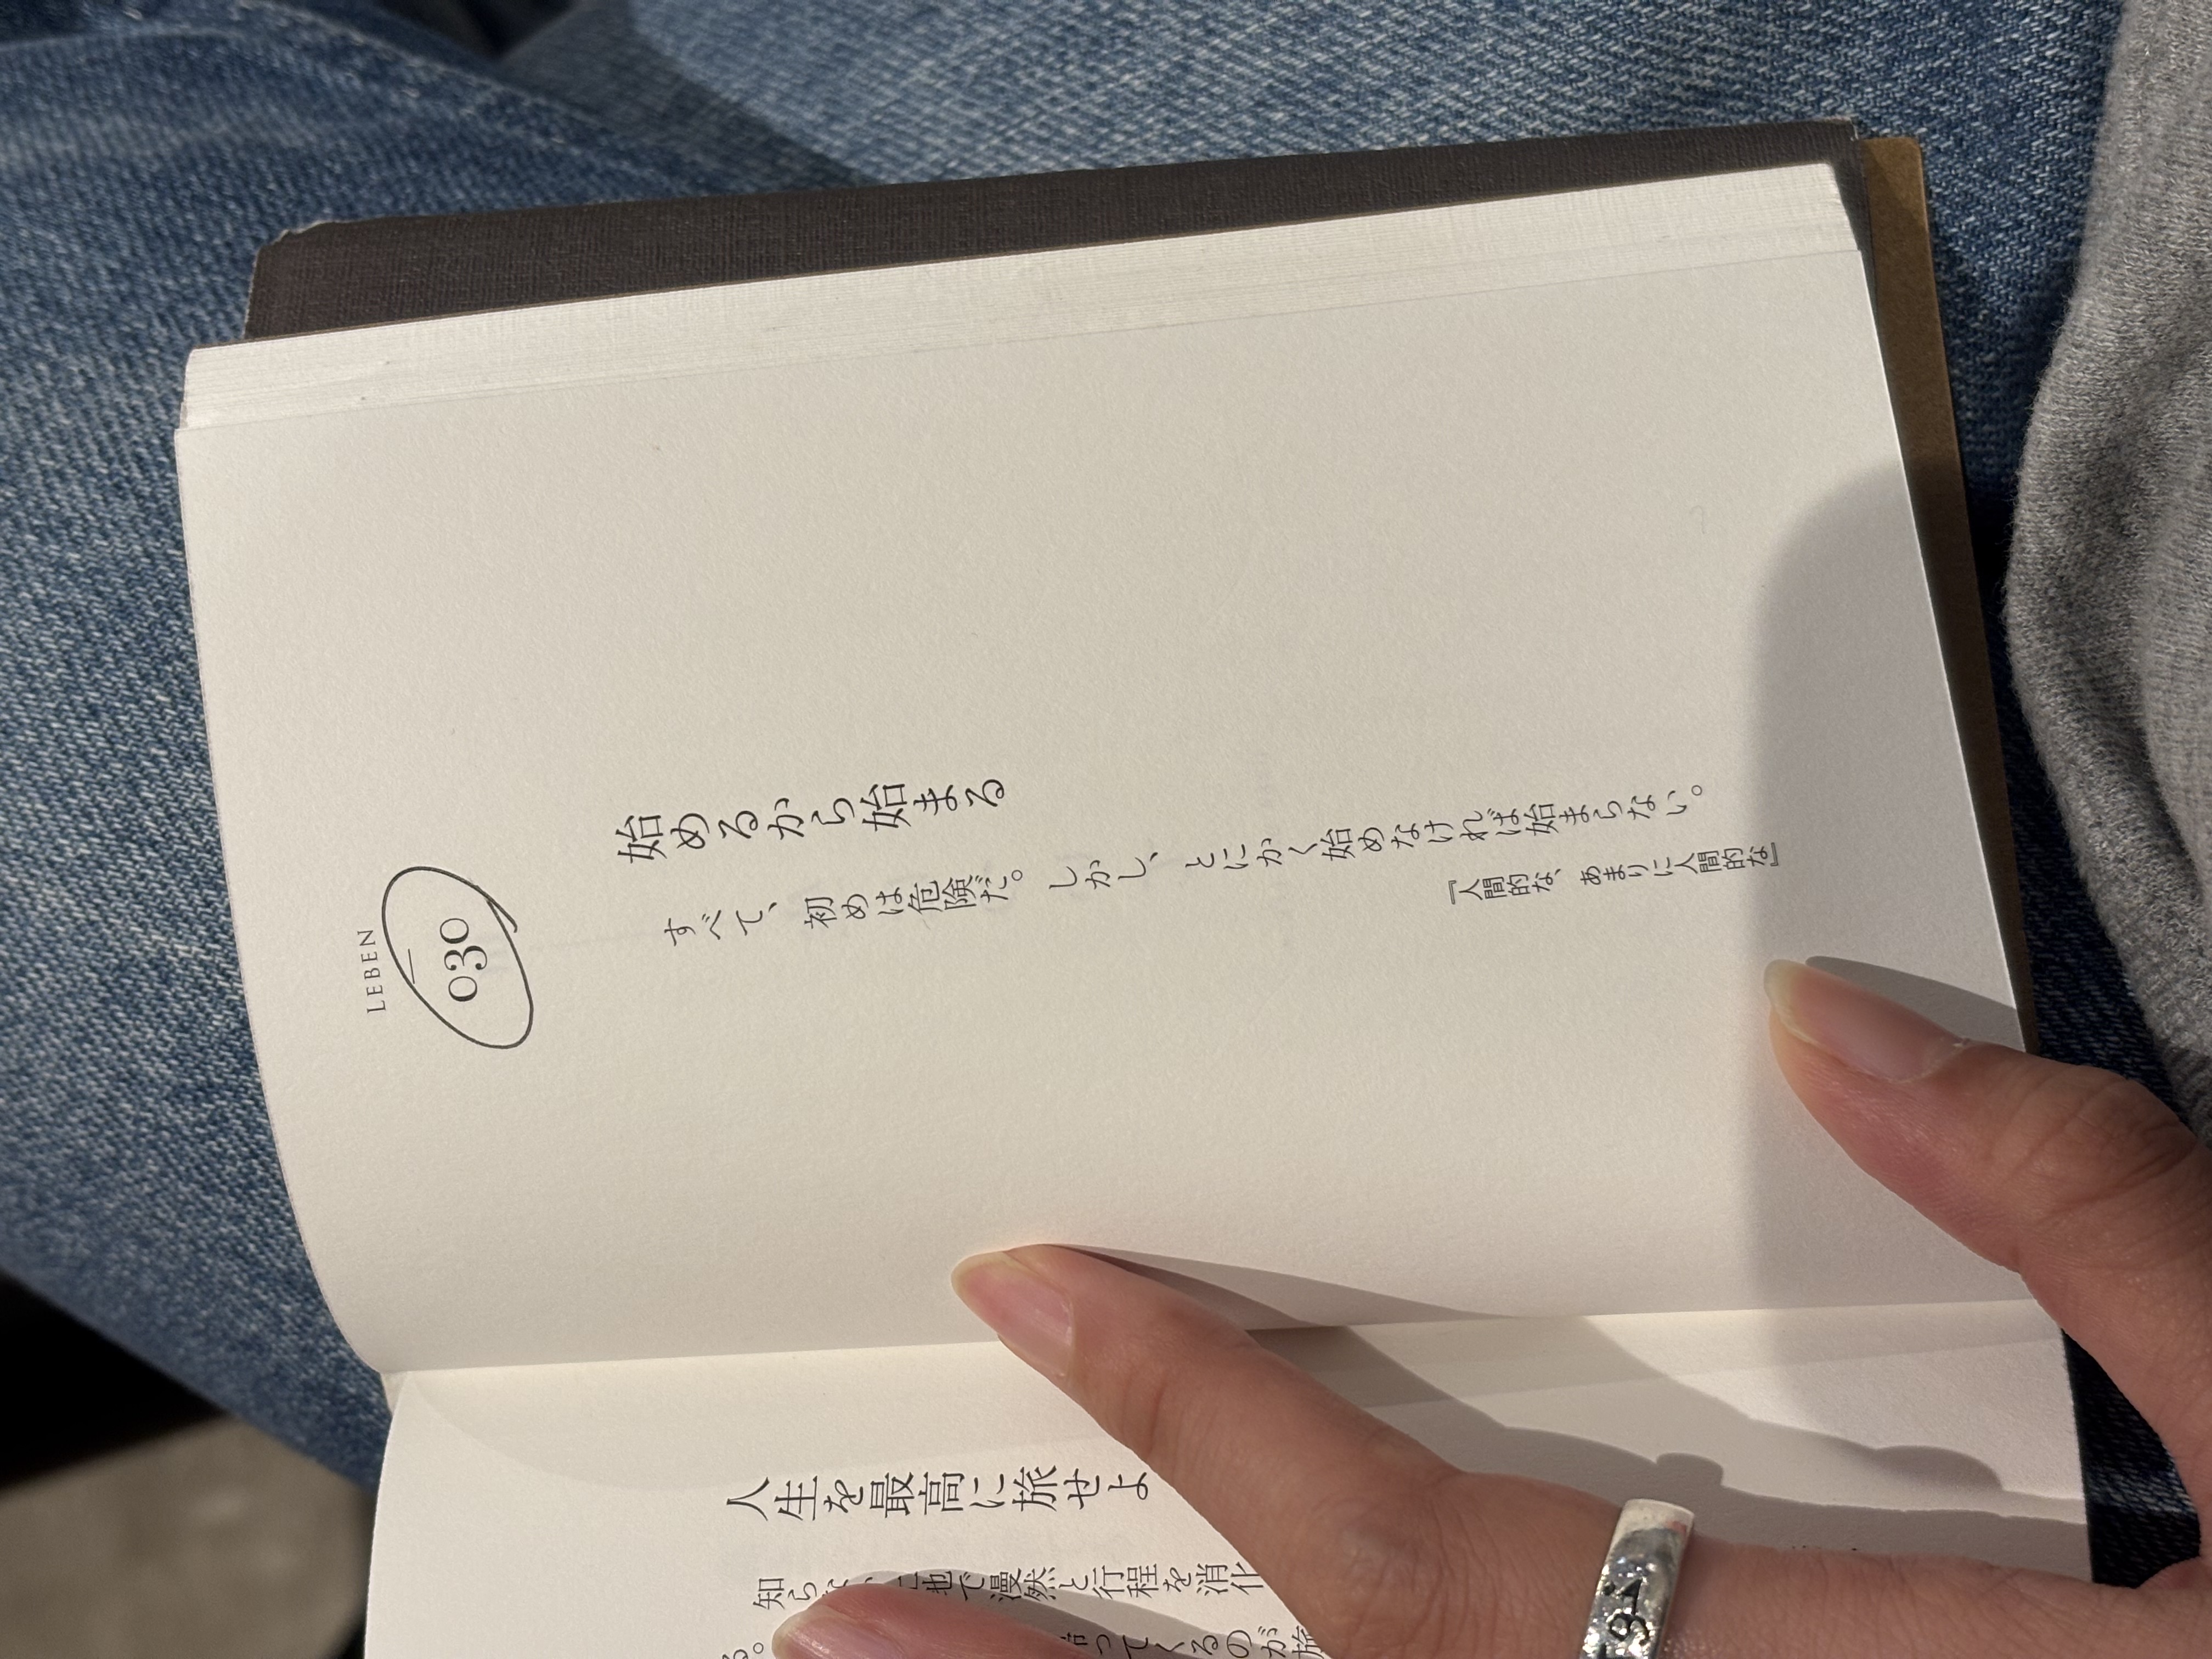 LEBEN
030
始めるから始まる
すべて、初めは危険だ。しかし、とにかく始めなければ始まらない。
『人間的な、あまりに人間的な』
人生を最高に旅せよ
知らない土地で漫然と行程を消化
ってくるのが旅